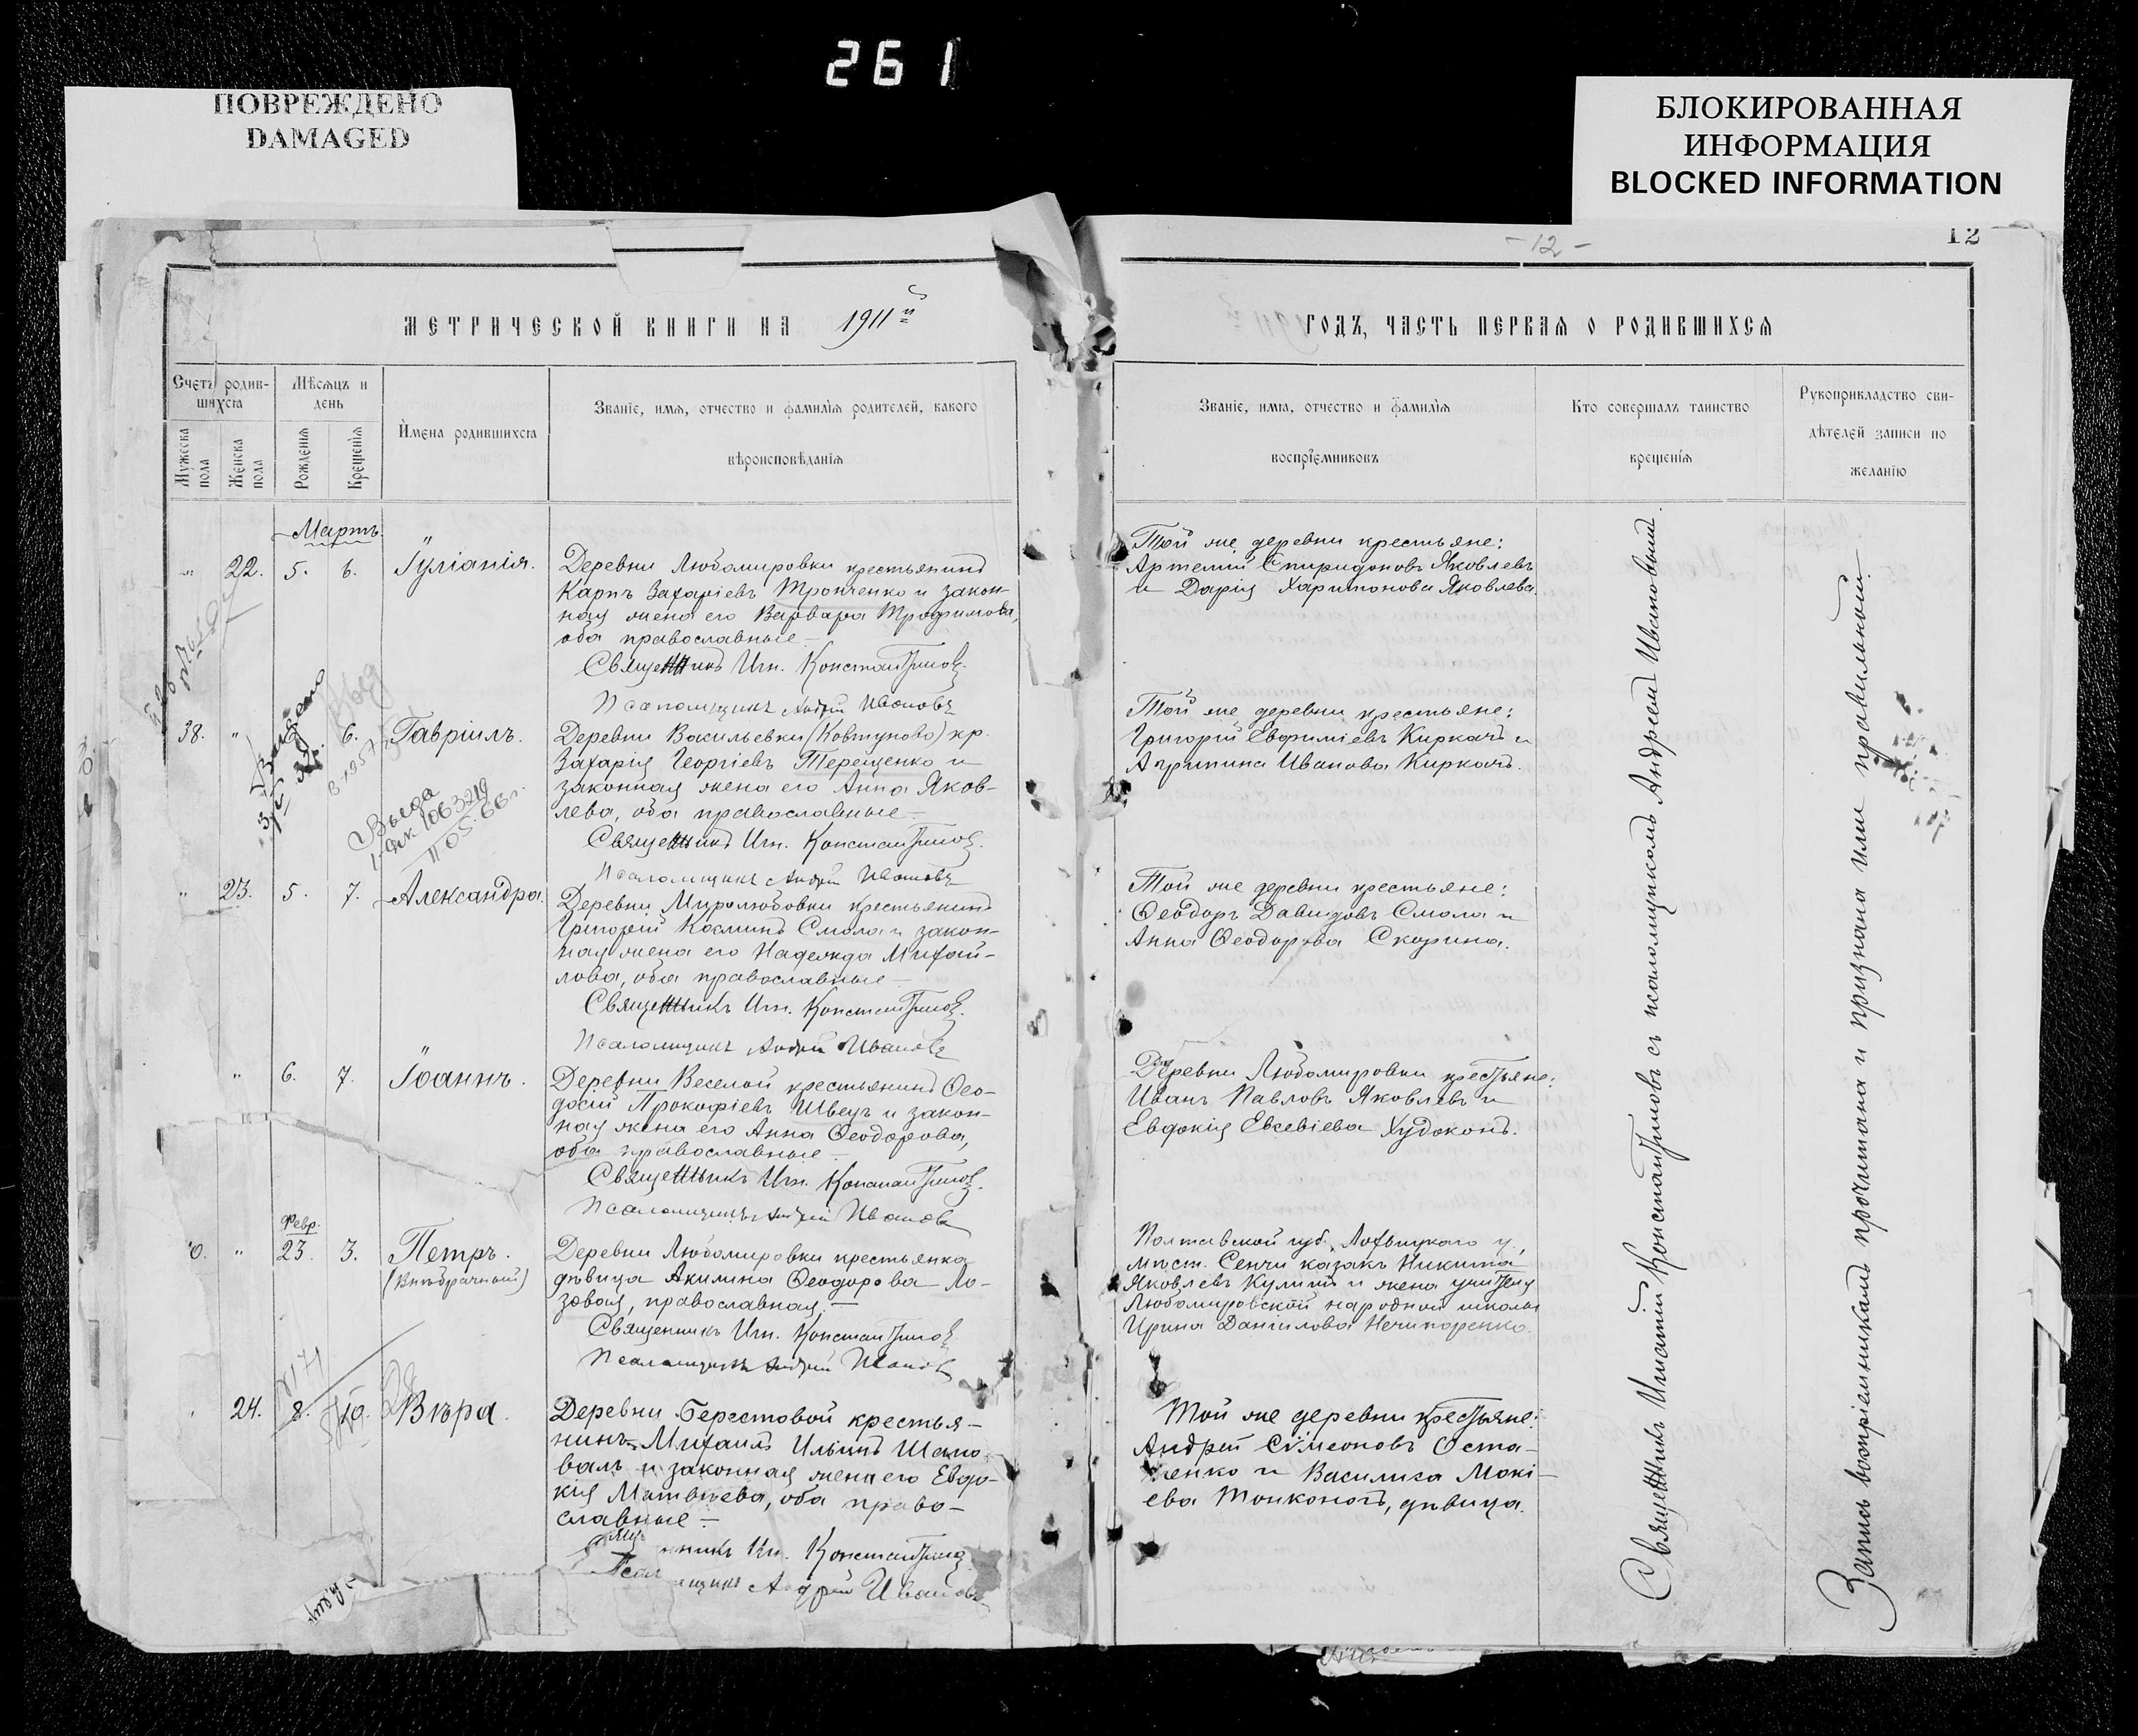 261
ПОВРЕЖДЕНО
DAMAGED
БЛОКИРОВАННАЯ
ИНФОРМАЦИЯ
BLOCKED INFORMATION
- 12 -
12
МЕТРИЧЕСКОЙ КНИГИ НА 1911й
ГОДЪ, ЧАСТЬ ПЕРВАЯ О РОДИВШИХСЯ
Счетъ родив-
шихся
Мѣсяцъ и
день
Имена родившихся
Званіе, имя, отчество и фамилія родителей, какого
вѣроисповѣданія
Мужеска
пола
Женска
пола
Рожденія
Крещенія
Званіе, имя, отчество и фамилія
воспріемниковъ
Кто совершалъ таинство
крещенія
Рукоприкладство сви-
дѣтелей записи по
желанію
Мартъ
" 22. 5. 6. Іуліанія.
Деревни Любомировки крестьянинъ
Карпъ Захаріевъ Тронченко и закон-
ная жена его Варвара Трофимова,
оба православные —
Священникъ Игн. Константиновъ.
Псаломщикъ Андрей Ивановъ
Той же деревни крестьяне:
Артемій Спиридоновъ Яковлевъ
и Дарія Харитонова Яковлева.
38. " 6. Гавріилъ.
Деревни Васильевки (Ковтуново) кр.
Захарія Георгіевъ Терещенко и
законная жена его Анна Яков-
лева, оба православные —
Священникъ Игн. Константиновъ.
Псаломщикъ Андрей Ивановъ
Той же деревни крестьяне:
Григорій Евфиміевъ Киркачъ и
Агрипина Иванова Киркачъ.
" 23. 5. 7. Александра.
Деревни Миролюбовки крестьянинъ
Григорій Косминъ Смола и закон-
ная жена его Надежда Михай-
лова, оба православные —
Священникъ Игн. Константиновъ.
Псаломщикъ Андрей Ивановъ
Той же деревни крестьяне:
Ѳеодоръ Давидовъ Смола и
Анна Ѳеодорова Скорина.
" 6. 7. Іоаннъ.
Деревни Веселой крестьянинъ Ѳео-
досій Прокофіевъ Швецъ и закон-
ная жена его Анна Ѳеодорова,
оба православные —
Священникъ Игн. Константиновъ.
Псаломщикъ Андрей Ивановъ
Деревни Любомировки крестьяне:
Иванъ Павловъ Яковлевъ и
Евдокія Евсевіева Худоконь.
Февр.
" 23. 3. Петръ.
(Внѣбрачный)
Деревни Любомировки крестьянка
дѣвица Акилина Ѳеодорова Ло-
зовая, православная. —
Священникъ Игн. Константиновъ
Псаломщикъ Андрей Ивановъ
Полтавской губ. Лохвицкаго у,
мѣст. Сенчи казакъ Никита
Яковлевъ Кулишъ и жена учителя
Любомировской народной школы
Ирина Даніилова Нечипоренко.
24. 8. 10. Вѣра.
Деревни Берестовой крестья-
нинъ Михаилъ Ильинъ Шапо-
валъ и законная жена его Евдо-
кія Матвѣева, оба право-
славные —
Константиновъ
Андрей Ивановъ
Той же деревни крестьяне:
Андрей Сѵмеоновъ Оста-
пенко и Василиса Мокі-
ева Тонконогъ, дѣвица.
Священникъ Игнатій Константиновъ съ псаломщикомъ Андреемъ Ивановымъ.
Запись воспріемниками прочитана и признана ими правильной.